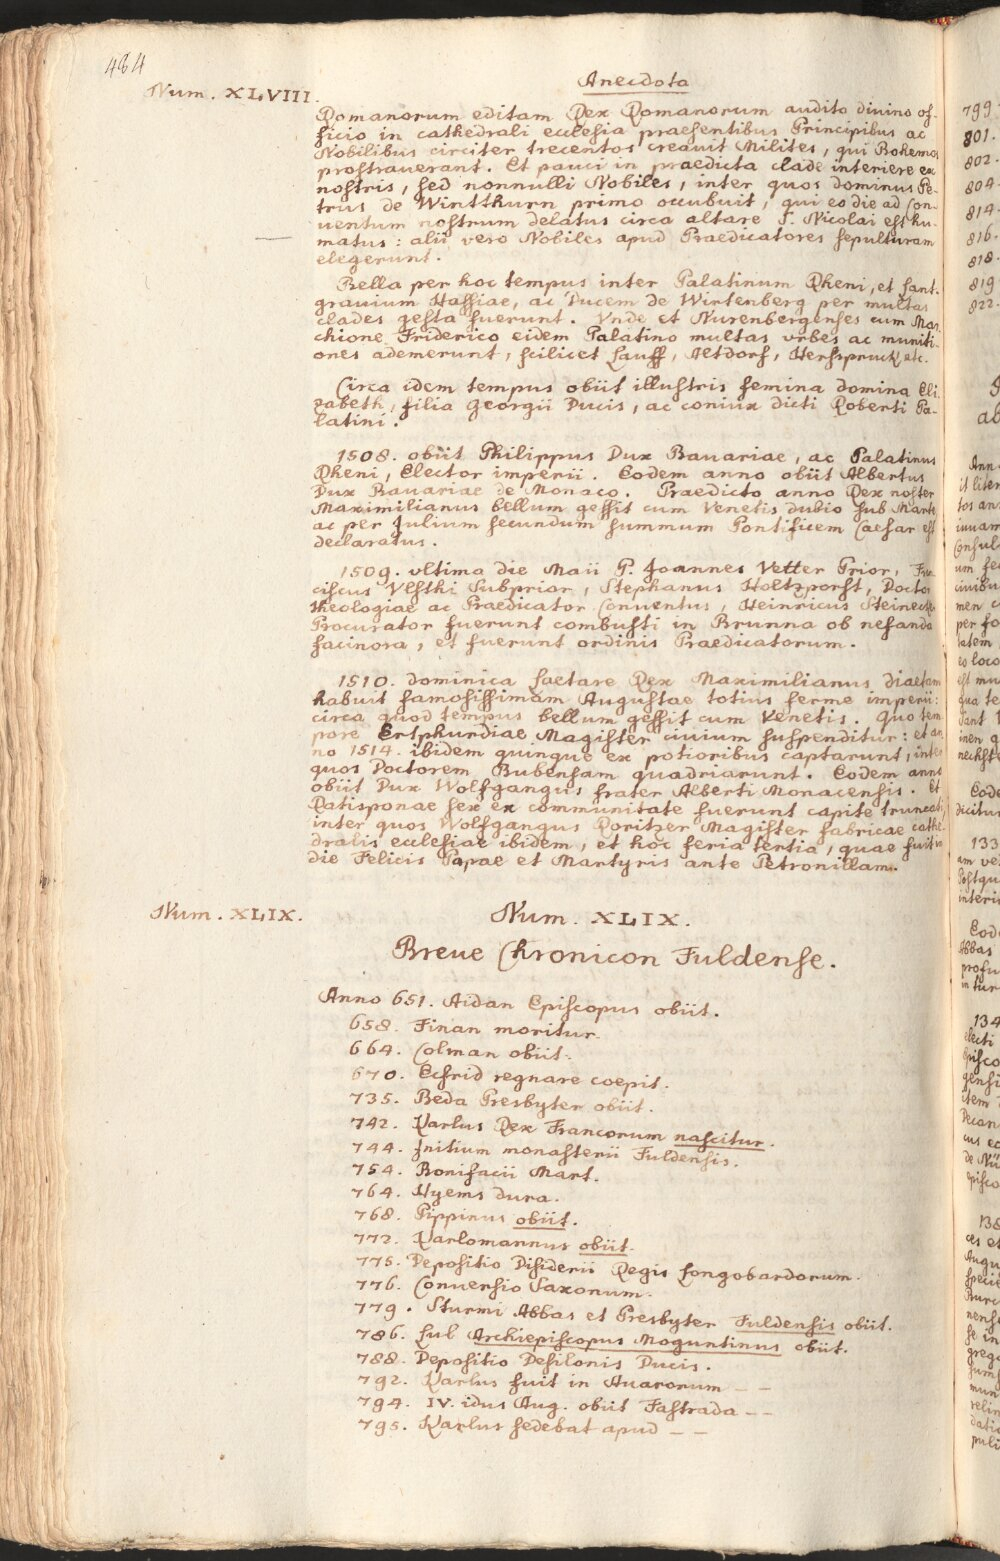 484
Anecdota
Num. XLVIII.
Romanorum editam Rex Romanorum audito divino of-
ficio in cathedrali ecclesia praesentibus Principibus ac
Nobilibus circiter trecentos creauit Milites, qui Bohemos
prostrauerant. Et pauci in praedicta clade interiere ex
nostris, sed nonnulli Nobiles, inter quos dominus Pe-
trus de Wintthurn primo occubuit, qui eo die ad Con-
uentum nostrum delatus circa altare S. Nicolai est hu-
matus: alii vero Nobiles apud Praedicatores sepulturam
elegerunt.
Bella per hoc tempus inter Palatinum Rheni, et Lant-
grauium Hassiae, ac Ducem de Wirtenberg per multas
clades gesta fuerunt. Vnde et Nurenbergenses cum Mar-
chione Friderico eidem Palatino multas vrbes ac muniti-
ones ademerunt, scilicet Lauff, Altdorf, Herspruck etc.
Circa idem tempus obiit illustris femina domina Eli-
zabeth, filia Georgii Ducis, ac coniux dicti Roberti Pa-
latini.
1508. obiit Philippus Dux Bauariae, ac Palatinus
Rheni, Elector imperii. Eodem anno obiit Albertus
Dux Bauariae de Monaco. Praedicto anno Rex noster
Maximilianus bellum gessit cum Venetis dubio sub Marte
ac per Julium secundum summum Pontificem Caesar est
declaratus.
1509. vltima die Maii P. Joannes Vetter Prior, Fran-
ciscus Vlsthi Subprior, Stephanus Holtzporst, Doctor
theologiae ac Praedicator Conuentus, Heinricus Steinecker
Procurator fuerunt combusti in Brunna ob nefanda
facinora, et fuerunt ordinis Praedicatorum.
1510. dominica Laetare Rex Maximilianus diaetam
habuit famosissimam Augustae totius ferme imperii:
circa quod tempus bellum gessit cum Venetis. Quo tem-
pore Ertphurdiae Magister ciuium suspenditur: et an-
no 1514. ibidem quinque ex potioribus captarunt, inter
quos Doctorem Bubensam quadriarunt. Eodem anno
obiit Dux Wolfgangus frater Alberti Monacensis. Et
Ratisponae sex ex communitate fuerunt capite truncati,
inter quos Wolfgangus Roritzer Magister fabricae cathe-
dralis ecclesiae ibidem, et hoc feria tertia, quae fuit in
die Felicis Papae et Martyris ante Petronillam.
Num. XLIX.
Num. XLIX.
Breue Chronicon Fuldense.
Anno 651. Aidan Episcopus obiit.
658. Finan moritur.
664. Colman obiit.
670. Ecfrid regnare coepit.
735. Beda Presbyter obiit.
742. Karlus Rex Francorum nascitur.
744. Initium monasterii Fuldensis.
754. Bonifacii Mart.
764. Hyems dura.
768. Pippinus obiit.
772. Karlomannus obiit.
775. Depositio Disiderii Regis Longobardorum.
776. Conuersio Saxonum.
779. Sturmi Abbas et Presbyter Fuldensis obiit.
786. Lul Archiepiscopus Moguntinus obiit.
788. Depositio Desilonis Ducis.
792. Karlus fuit in Auaronum — —
794. IV. idus Aug. obiit Fastrada — —
795. Karlus sedebat apud — —
799.
801.
802.
804.
814.
816.
818.
819
822.